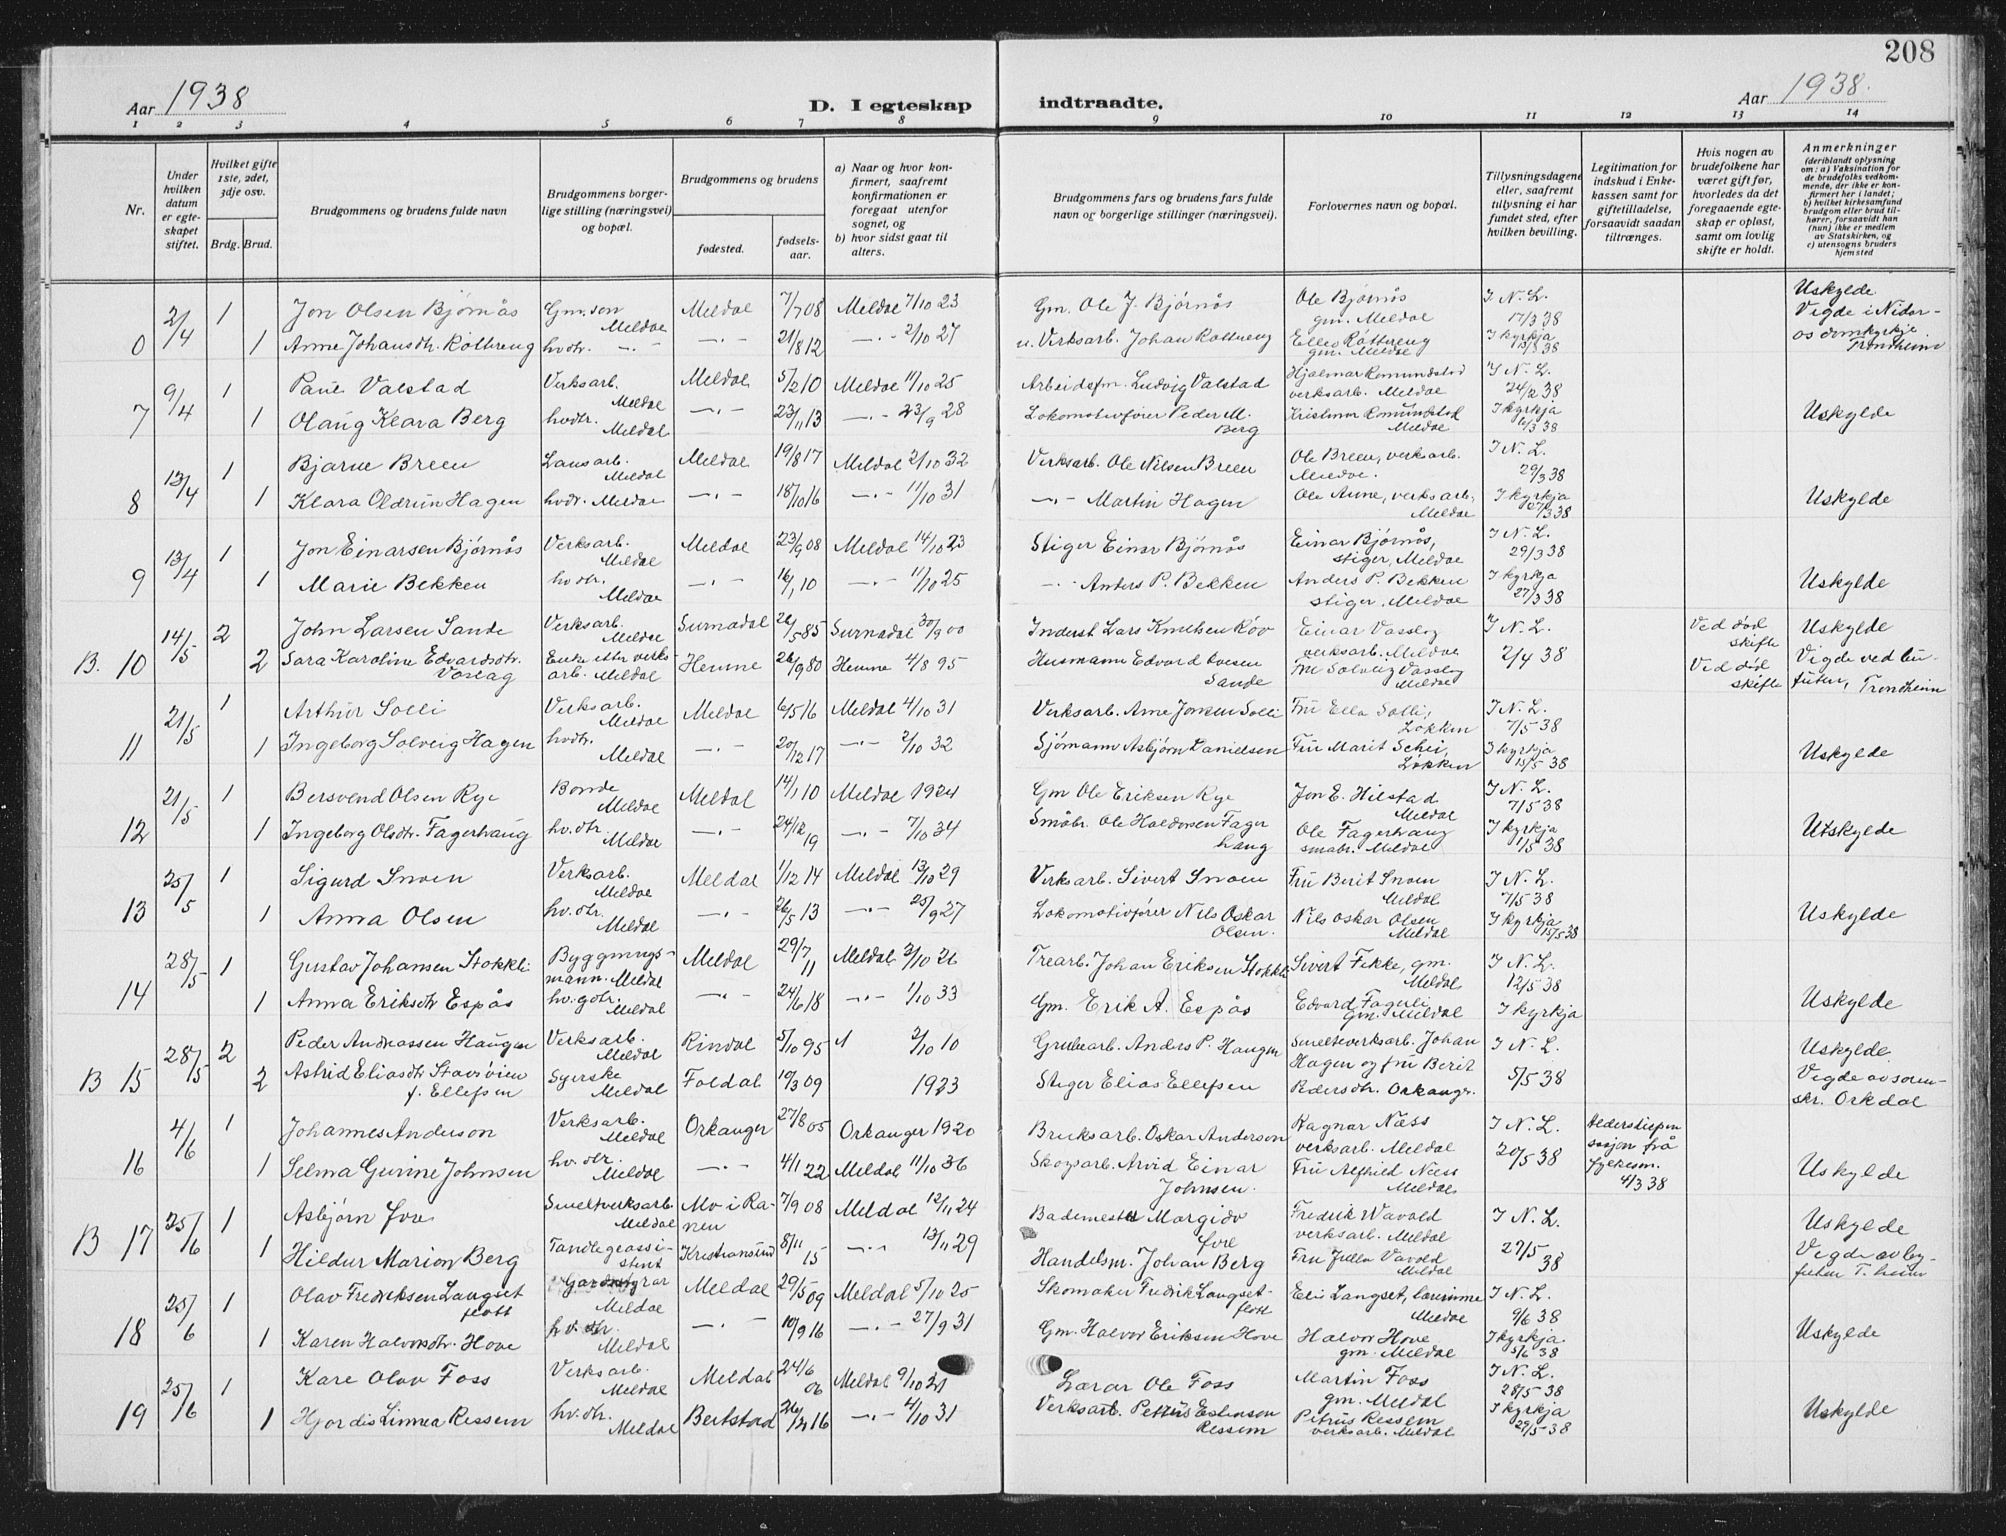 208
Aar 1938
D. I egteskap indtraadte.
Aar 1938.
1 2 3 4 5 6 7 8 9 10 11 12 13 14
Nr.
Under hvilken datum er egteskapet stiftet.
Hvilket gifte 1ste, 2det, 3dje osv.
Brdg. Brud.
Brudgommens og brudens fulde navn
Brudgommens borgerlige stilling (næringsvei) og bopæl.
Brudgommens og brudens
fødested.
fødselsaar.
a) Naar og hvor konfirmert, saafremt konfirmationen er foregaat utenfor sognet, og
b) hvor sidst gaat til alters.
Brudgommens fars og brudens fars fulde navn og borgerlige stillinger (næringsvei).
Forlovernes navn og bopæl.
Tillysningsdagene eller, saafremt tillysning ei har fundet sted, efter hvilken bevilling.
Legitimation for indskud i Enkekassen samt for giftetilladelse, forsaavidt saadan tiltrænges.
Hvis nogen av brudefolkene har været gift før, hvorledes da det foregaaende egteskap er opløst, samt om lovlig skifte er holdt.
Anmerkninger
(deriblandt oplysning om: a) Vaksination for de brudefolks vedkommende, der ikke er konfirmert her i landet; b) hvilket kirkesamfund brudgom eller brud tilhører, forsaavidt han (hun) ikke er medlem av Statskirken, og c) utensogns bruders hjemsted
2/4 1 Jon Olsen Bjørnås Gm. søn Meldal Meldal 7/7 08 Meldal 7/10 23 Gm. Ole J. Bjørnås Ole Bjørnås gm. Meldal I N. L. 17/3 38 Uskylde Vigde i Nidaros domkyrkje Trondheim
1 Anne Johansdtr. Røttreng hvdtr. -"- 21/8 12 -"- 2/10 27 Verksarb. Johan Røttreng Røttreng gm. Meldal I kyrkja 38
7 9/4 1 Paul Valstad Verksarb. Meldal Meldal 5/2 10 Meldal 11/10 25 Arbeidsfm. Ludvig Valstad Hjalmar Romundstad verksarb. Meldal I N. L. 24/2 38
1 Olaug Klara Berg hvdtr. Meldal -"- 23/11 13 -"- 23/9 28 Lokomotivfører Peder M. Berg Romundstad Meldal I kyrkja 38 Uskylde
8 13/4 1 Bjarne Breen Meldal Meldal 19/8 17 Meldal 2/10 32 Verksarb. Ole Nilsen Breen Ole Breen, verksarb. Meldal. I N. L. 29/3 38
1 Klara Oldrun Hagen hvdtr. Meldal -"- 18/10 16 -"- 11/10 31 -"- Martin Hagen Ole Aune, verksarb. Meldal I kyrkja 27/3 38 Uskylde
9 13/4 1 Jon Einarsen Bjørnås Verksarb. Meldal Meldal 23/9 08 Meldal 14/10 23 Stiger Einar Bjørnås Einar Bjørnås, stiger, Meldal I N. L. 29/3 38
1 Marie Bekken hvdtr. Meldal -"- 16/1 10 -"- 11/10 25 -"- Anders P. Bekken Anders P. Bekken stiger, Meldal I kyrkja 27/3 38 Uskylde
B. 10 14/5 2 John Larsen Sande Verksarb. Meldal Surnadal 26/5 85 Surnadal 30/9 00 Inderst Lars Knutsen Røv Einar Vasslag verksarb. Meldal I N. L. 2/4 38 Ved død skifte Uskylde
2 Sara Karoline Edvardsdtr. Voslag Enke etter verksarb. Meldal Hemne 26/9 80 Hemne 4/8 95 Husmann Edvard Iversen Sande Solveig Vasslag Meldal Ved død skifte Vigde ved byfuten, Trondheim
11 21/5 1 Arthur Solli Verksarb. Meldal Meldal 6/5 16 Meldal 4/10 31 Verksarb. Arne Jonsen Solli Fru Ella Solli, Løkken I N. L. 7/5 38
1 Ingeborg Solveig Hagen hvdtr. Meldal -"- 20/12 17 -"- 2/10 32 Sjømann Asbjørn Danielsen Fru Marit Schei, Løkken I kyrkja 15/5 38 Uskylde
12 21/5 1 Bersvend Olsen Rye Bonde Meldal Meldal 14/1 10 Meldal 1924 Gm Ole Eriksen Rye Jon E. Hilstad Meldal I N. L. 7/5 38
1 Ingeborg Olsdtr. Fagerhaug hv. dtr. Meldal -"- 24/12 19 -"- 7/10 34 Småbr. Ole Haldorsen Fagerhaug Ole Fagerhaug småbr. Meldal I kyrkja 1/5 38 Utskylde
13 25/5 1 Sigurd Snoen Verksarb. Meldal Meldal 1/12 14 Meldal 13/10 29 Verksarb. Sivert Snoen Fru Berit Snoen Meldal I N. L. 7/5 38
1 Anna Olsen hv. dtr. Meldal -"- 26/5 13 -"- 25/9 27 Lokomotivfører Nils Oskar Olsen. Nils Oskar Olsen Meldal I kyrkja 15/5 38 Uskylde
14 28/5 1 Gustav Johansen Stokkli Byggningsmann. Meldal Meldal 29/7 11 Meldal 3/10 26 Trearb. Johan Eriksen Stokkli Sivert Fikke, gm. Meldal I N. L. 12/5 38
1 Anna Eriksdtr Espås hv. g.dtr. Meldal -"- 24/6 18 -"- 1/10 33 Gm. Erik A. Espås Edvard Fagerli Gm. Meldal I kyrkja Uskylde
B 15 28/5 2 Peder Andreassen Haugen Verksarb. Meldal Rindal 5/10 95 2/10 10 Grubearb. Anders P. Haugen Smelteverksarb. Johan Hagen og fru Berit Pedersdtr. Orkanger. I N. L. 5/5 38 Uskylde
2 Astrid Eliasdtr Stavsøien f. Ellefsen Syerske Meldal Foldal 10/3 09 1923 Stiger Elias Ellefsen Vigde av sorenskr. Orkdal
16 4/6 1 Johannes Anderson Verksarb. Meldal Orkanger 27/8 05 Orkanger 1920 Bruksarb. Oskar Anderson Ragnar Næss verksarb. Meldal I N. L. 20/5 38 Aldersdispensasjon frå fylkesm. 4/3 38
1 Selma Gurine Johnsen hv. dtr. Meldal -"- 4/1 22 Meldal 11/10 36 Skogsarb. Arvid Einar Johnsen. Fru Alfhild Næss Meldal Uskylde
B 17 25/6 1 Asbjørn Øvre Smelteverksarb. Meldal Mo i Ranen 7/9 08 Meldal 12/11 24 Bademester Margido Øvre Fredrik Wavold verksarb. Meldal I N. L. 27/5 38 Uskylde
1 Hildur Marion Berg Tandlegeassistent Kristiansund 8/11 15 -"- 13/11 29 Handelsm. Johan Berg Fru Julla Vavold Meldal Vigde av byfuten T.heim
18 25/6 1 Olav Fredriksen Langsetflott Meldal Meldal 29/5 09 Meldal 5/10 25 Skomaker Fredrik Langsetflott Eli Langset, lærerinne Meldal I N. L. 9/6 38
1 Karen Halvorsdtr. Hove hv. dtr. Meldal -"- 10/9 16 -"- 27/9 31 Gm. Halvor Eriksen Hove Halvor Hove gm. Meldal I kyrkja. 5/6 38 Uskylde
19 25/6 1 Kare Olav Foss Verksarb. Meldal Meldal 24/6 06 Meldal 9/10 21 Lærar Ole Foss Martin Foss gm. Meldal I N. L. 28/5 38
1 Hjordis Linnea Ressem hv. dtr. Meldal 26/12 16 -"- 4/10 31 Verksarb. Petrus Estensen Ressem Petrus Ressem verksarb. Meldal I kyrkja 29/5 38 Uskylde